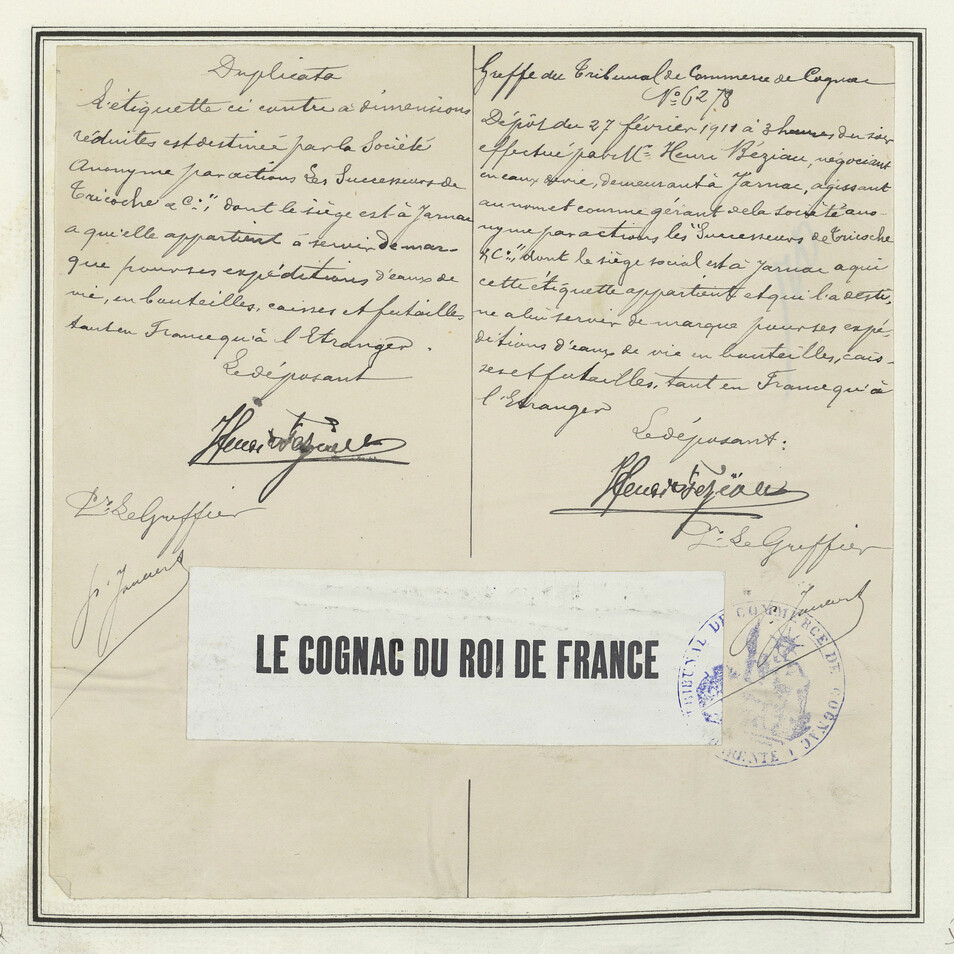 Duplicata
L'étiquette ci contre à dimensions
réduites est destinée par la Société
Anonyme par actions Les Successeurs de
Tricoche & Cie," dont le siège est à Jarnac
a qu'elle appartient à servir de mar-
que pour ses expéditions d'eaux de
vie, en bouteilles, caisses et futailles
tant en France qu'à l'Etranger.
Le déposant
Henri
Pr. Le Greffier
Greffe du Tribunal de Commerce de Cognac
No 6278
Dépôt du 27 février 1911 à 3 heures du soir
effectué par Mr. Henri Béziau, négociant
en eaux de vie, demeurant à Jarnac, agissant
au nom et comme gérant de la société ano-
nyme par actions les "Successeurs de Tricoche
& Cie," dont le siège social est à Jarnac a qui
cette étiquette appartient et qui l'a desti-
ne a lui servir de marque pour ses expé-
ditions d'eaux de vie en bouteilles, cais-
ses et futailles, tant en France qu'à
l'Etranger
Le déposant:
Henri
Pr. Le Greffier
LE COGNAC DU ROI DE FRANCE
TRIBUNAL DE COMMERCE DE COGNAC